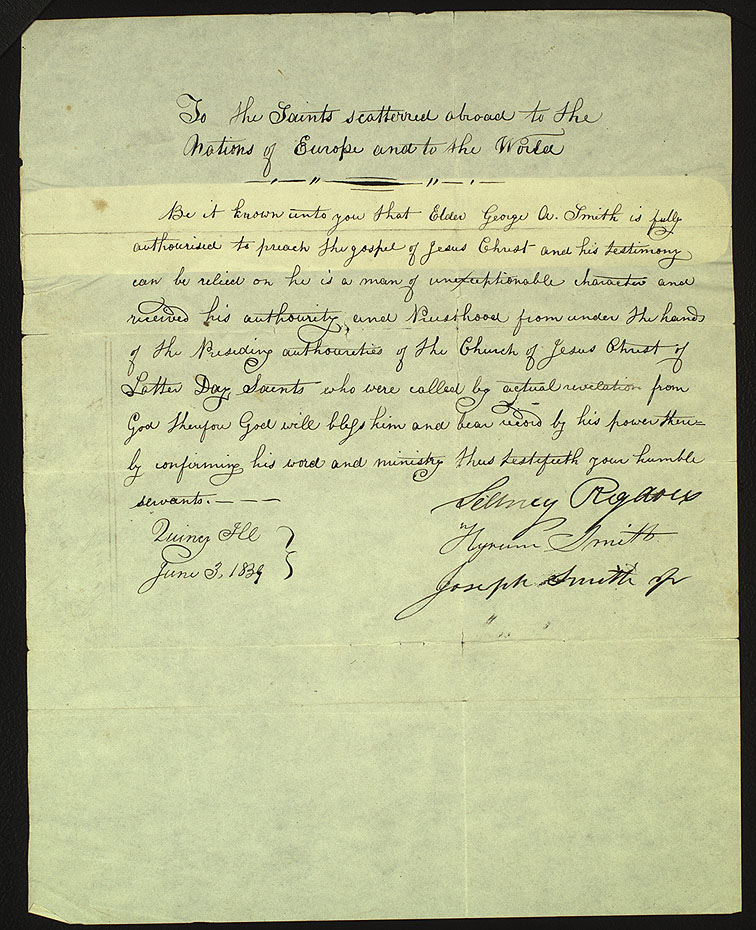 To the Saints scatterred abroad to the
Nations of Europe and to the World
Be it known unto you that Elder George A. Smith is fully
authourised to preach the gospel of Jesus Christ and his testimony
can be relied on he is a man of unexceptionable character and
received his authourity and Priesthood from under the hands
of the Presiding authoureties of the Church of Jesus Christ of
Latter Day Saints who were called by actual revelation from
God therefore God will bless him and bear record by his power there=
by confirming his word and ministry thus testifieth your humble
servants.
Sidney Rigdon
Quincy Ill
Hyrum Smith
June 3, 1839
Joseph Smith Jr